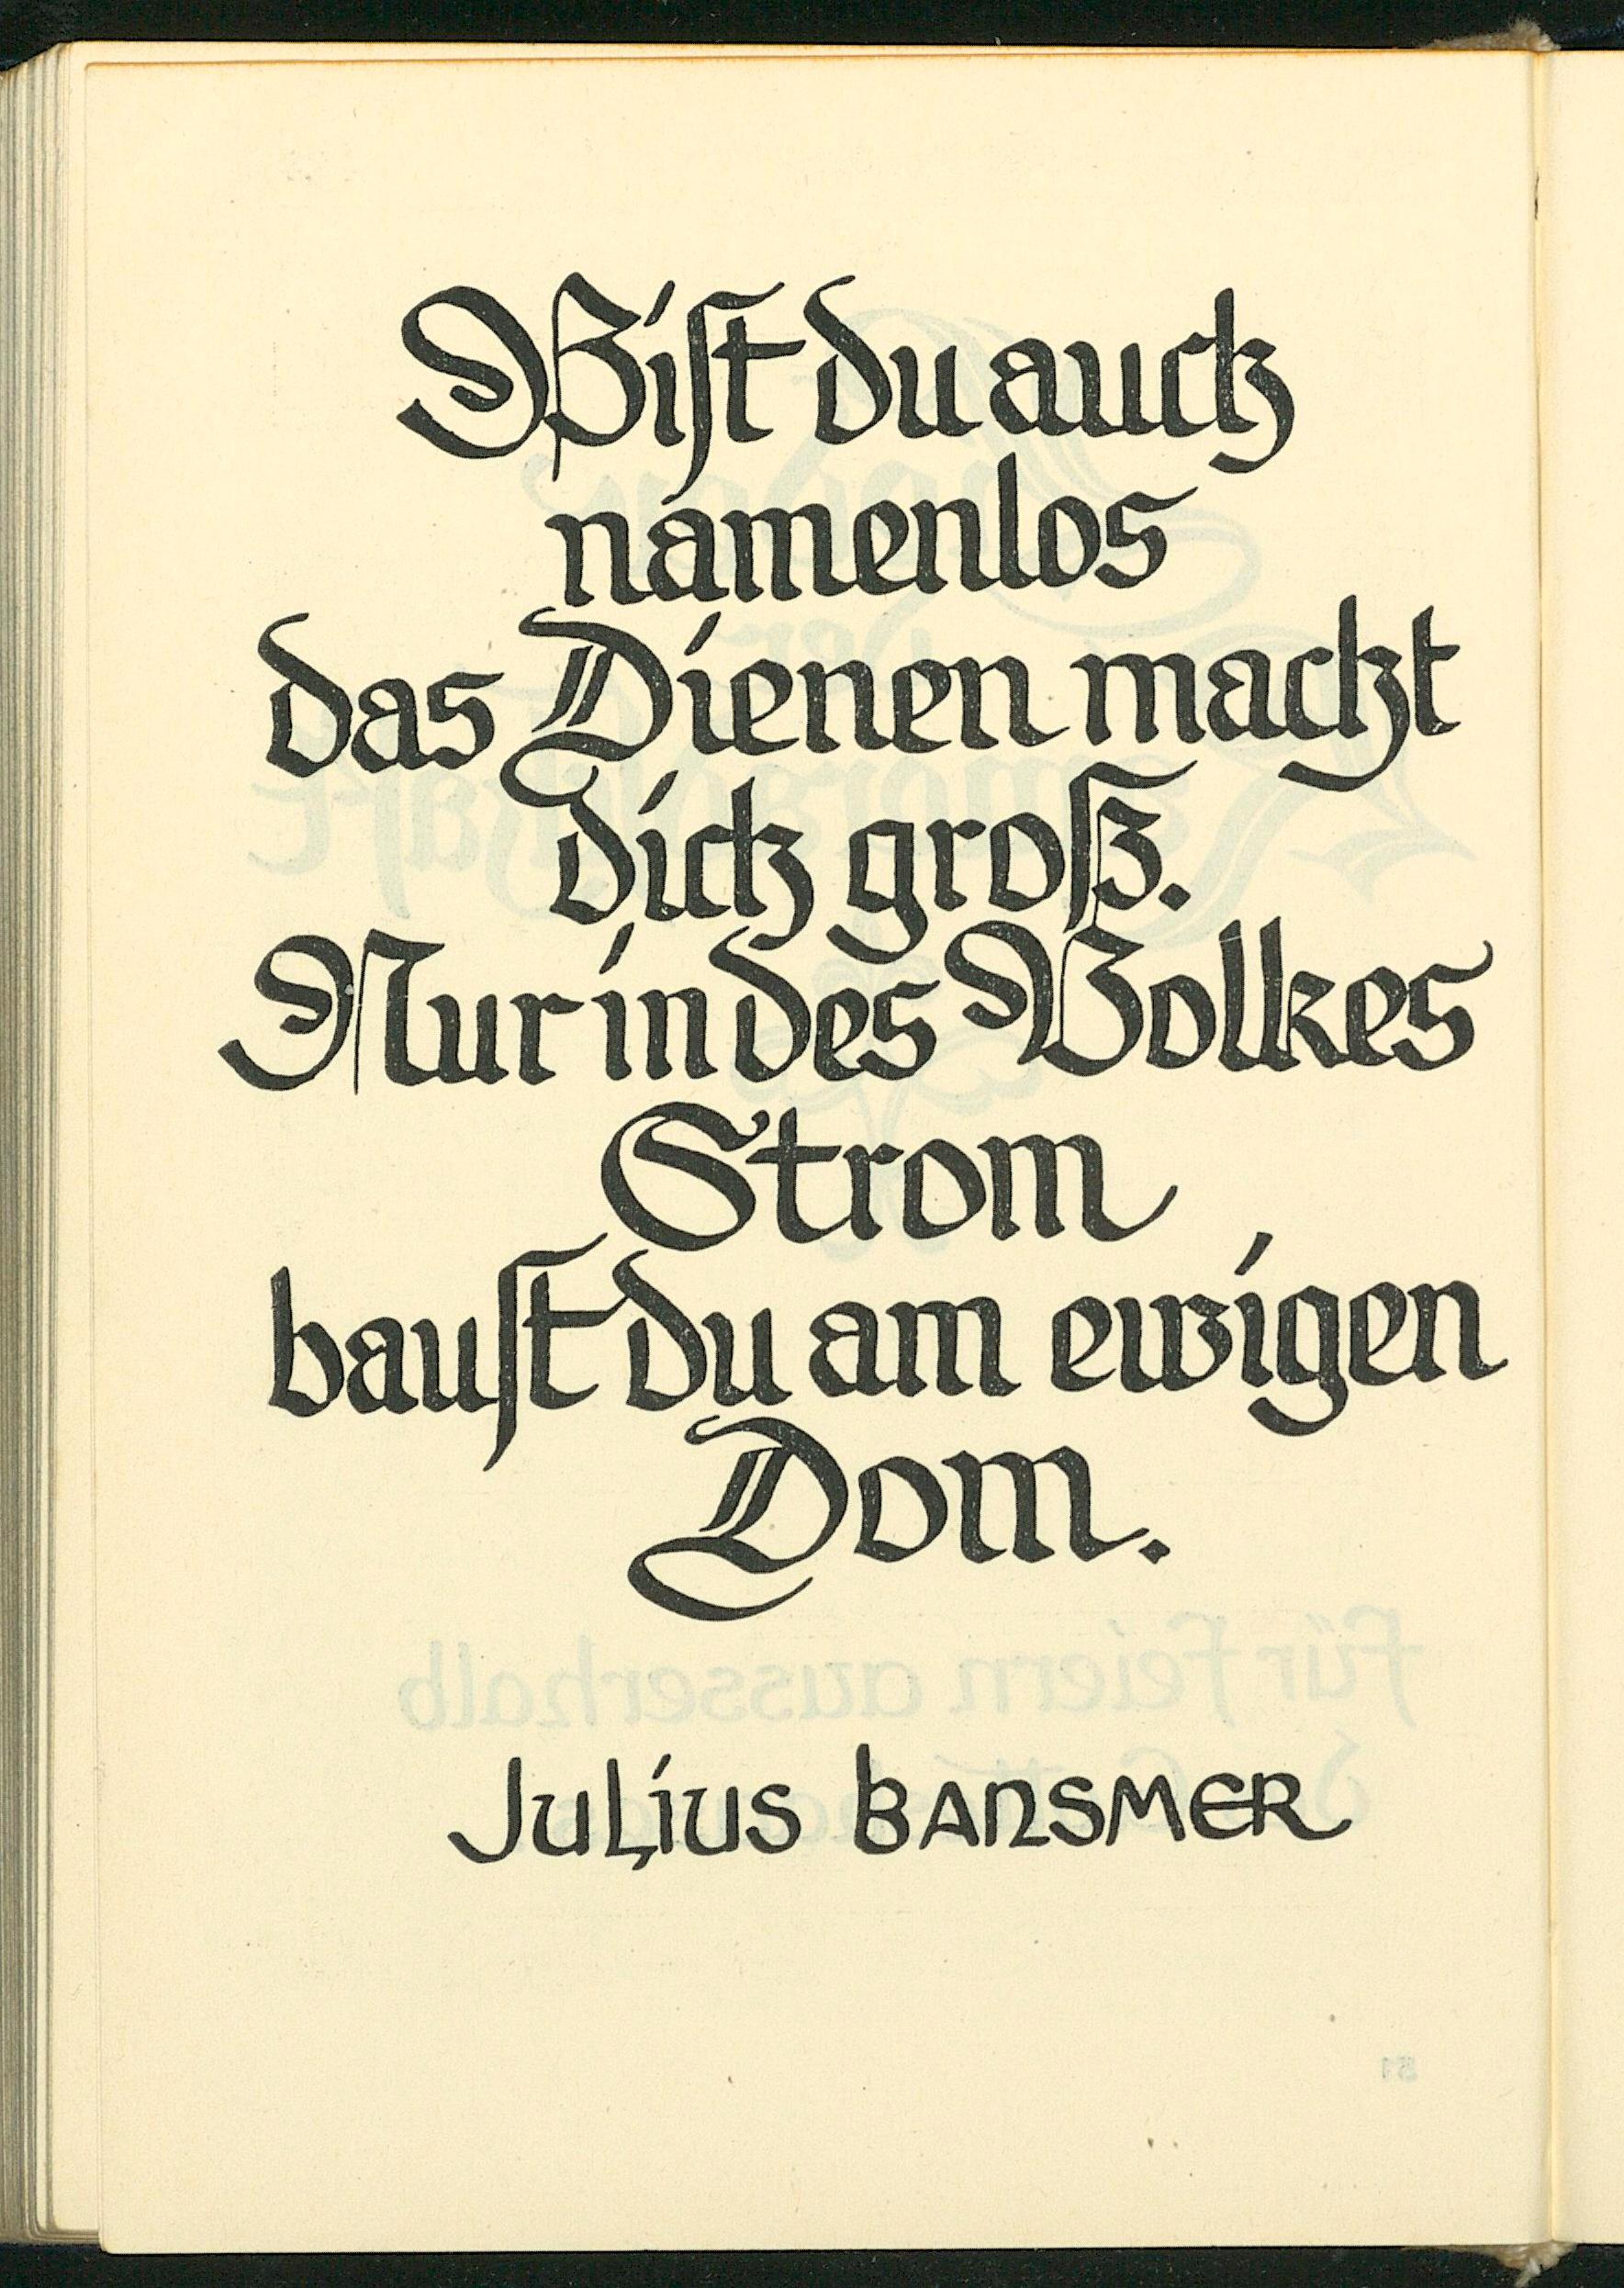 Bist du auch
namenlos
das Dienen macht
dich groß.
Nur in des Volkes
Strom
baust du am ewigen
Dom.
Julius BANSMER